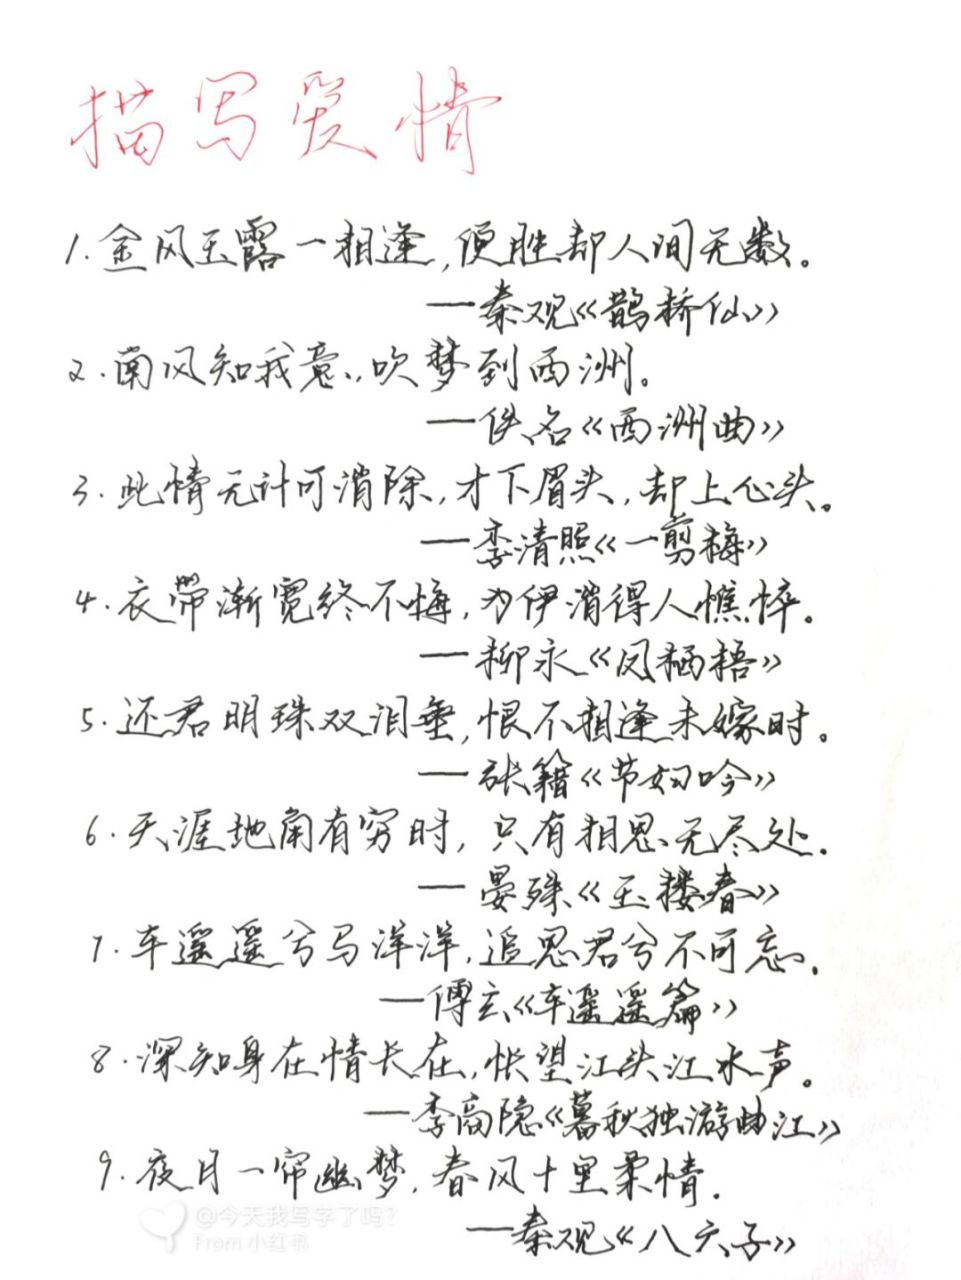 描写爱情
1.金风玉露一相逢,便胜却人间无数。
—秦观《鹊桥仙》
2.南风知我意,吹梦到西洲。
—佚名《西洲曲》
3.此情无计可消除,才下眉头,却上心头。
—李清照《一剪梅》
4.衣带渐宽终不悔,为伊消得人憔悴。
—柳永《凤栖梧》
5.还君明珠双泪垂,恨不相逢未嫁时。
—张籍《节妇吟》
6.天涯地角有穷时,只有相思无尽处.
—晏殊《玉楼春》
7.车遥遥兮马洋洋,追思君兮不可忘.
—傅玄《车遥遥篇》
8.深知身在情长在,怅望江头江水声。
—李商隐《暮秋独游曲江》
9.夜月一帘幽梦,春风十里柔情.
—秦观《八六子》
@今天我写字了吗?
From 小红书